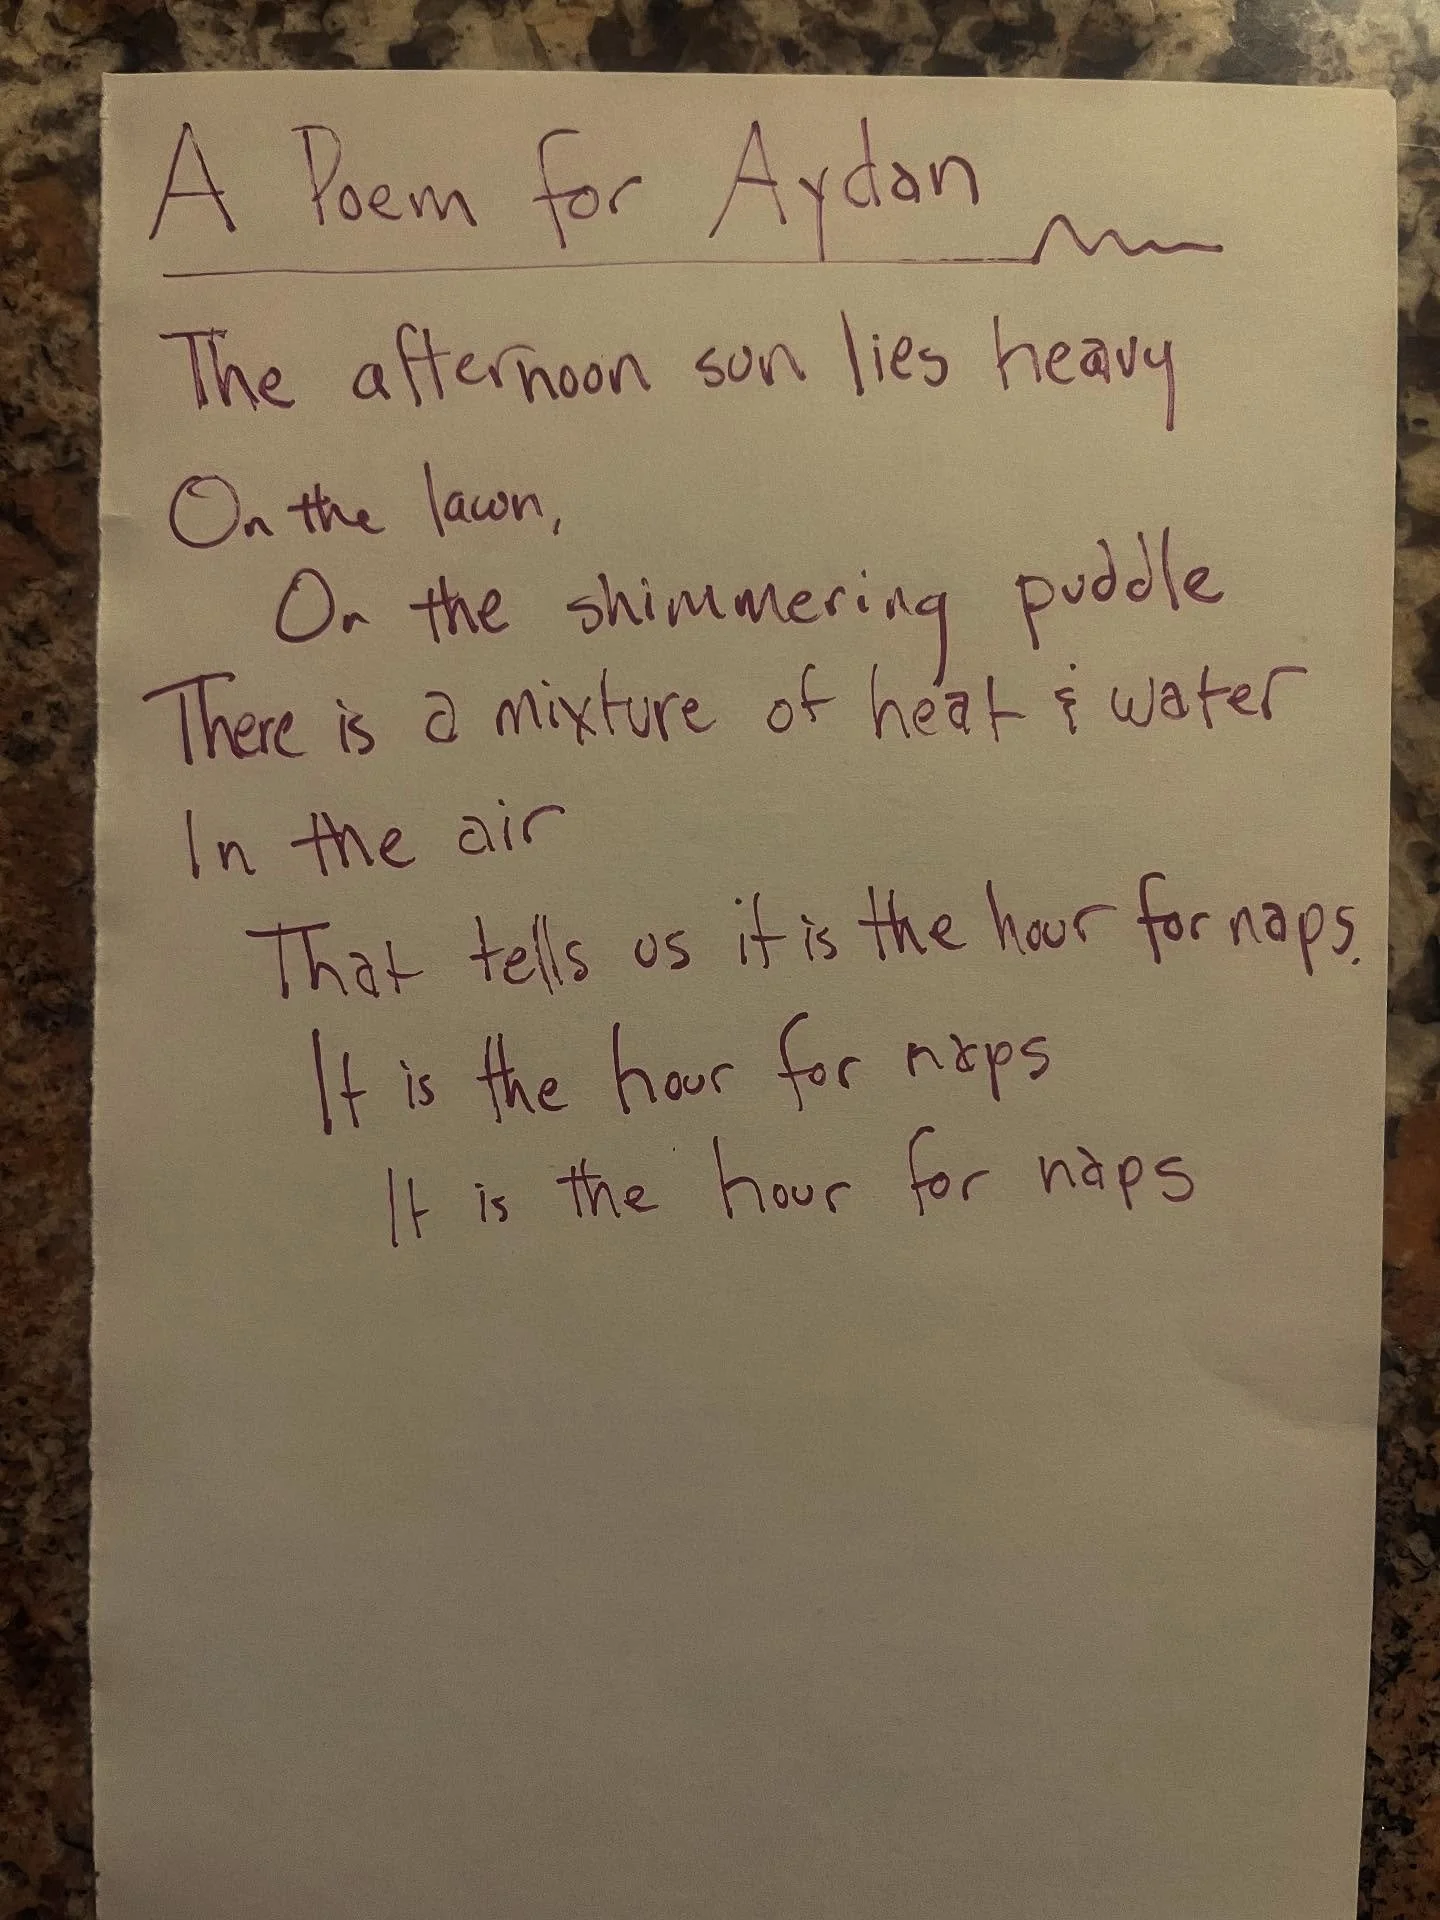 A Poem for Aydan
The afternoon sun lies heavy
On the lawn,
On the shimmering puddle
There is a mixture of heat & water
In the air
That tells us it is the hour for naps.
It is the hour for naps
It is the hour for naps